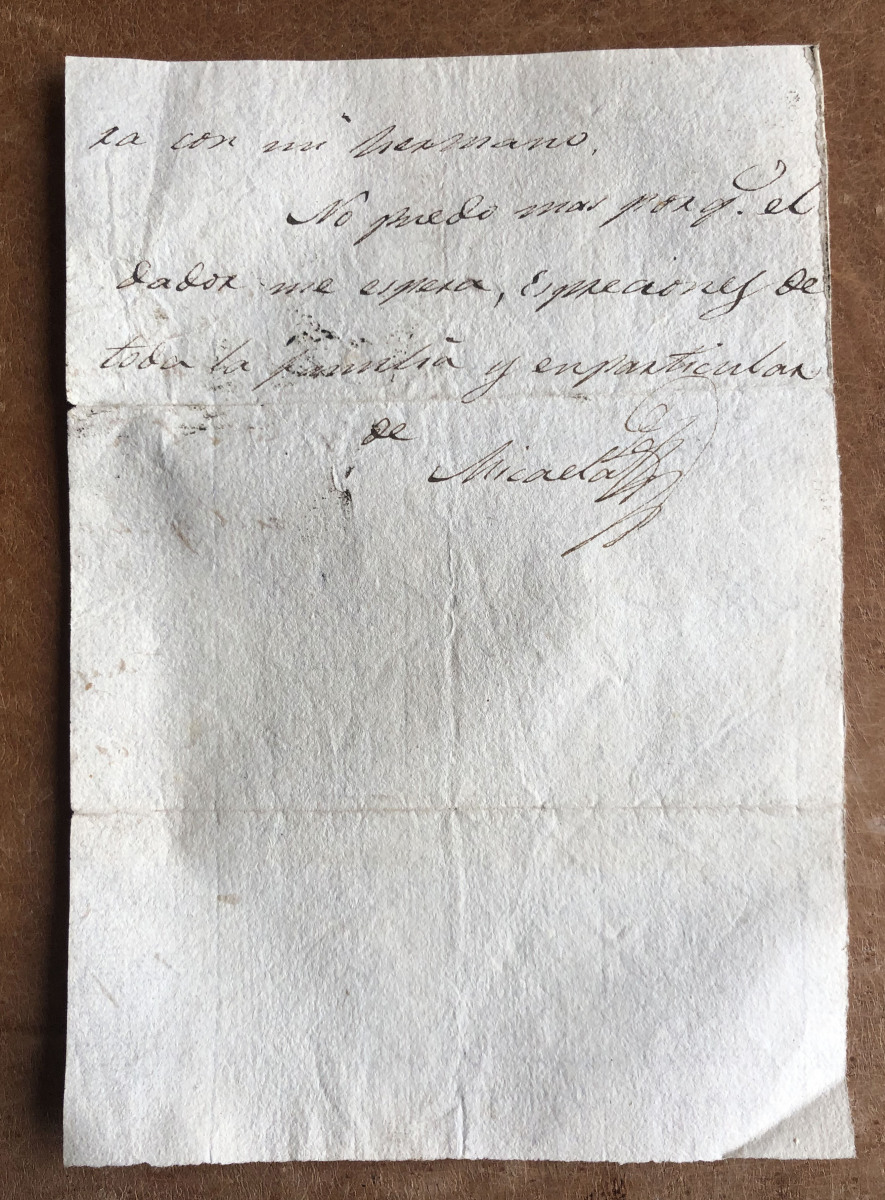 ra con mi hermano.
No puedo mas porq.e el
dador me espera, Espreciones de
toda la familia y enparticular
de
Micaela